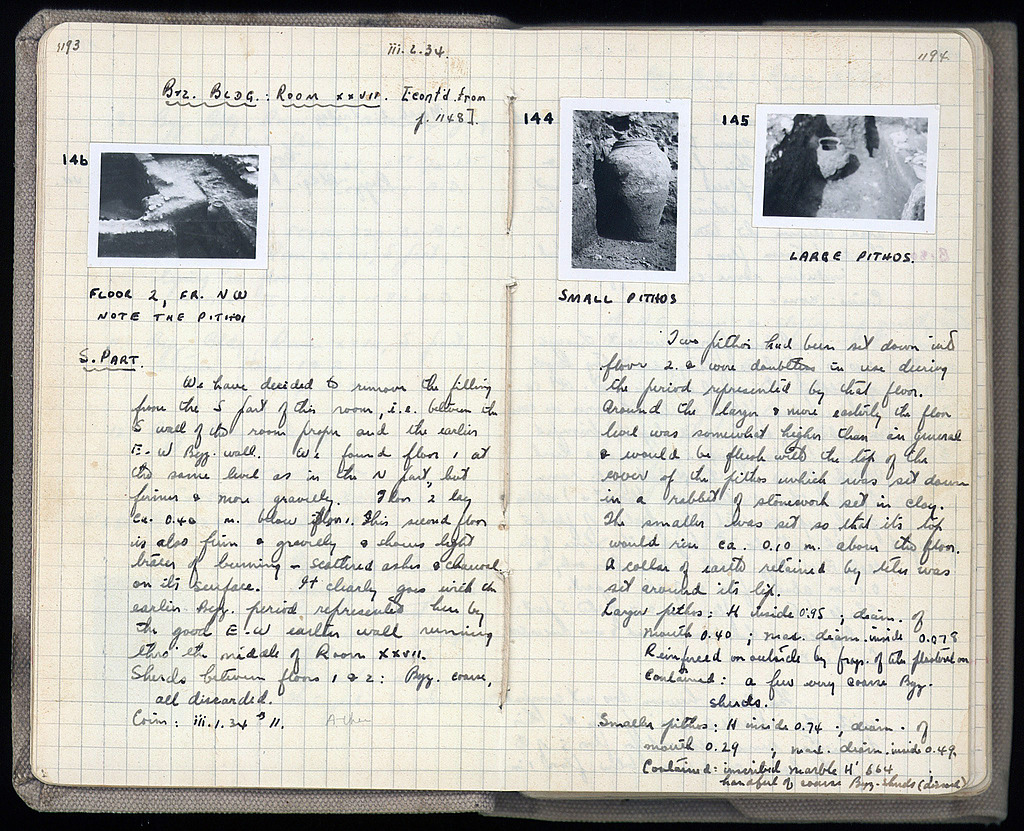 1193
iii.2.34.
Byz. BLDG.: ROOM XXVII. [cont'd from
p. 1148].
146
FLOOR 2, FR. NW
NOTE THE PITHOI
S. PART.
We have decided to remove the filling
from the S part of this room, i.e. between the
S wall of the room proper and the earlier
E-W Byz. wall. We found floor 1 at
the same level as in the N part, but
firmer & more gravelly. Floor 2 lay
ca. 0.40 m. below floor 1. This second floor
is also firm & gravelly & shows light
traces of burning - scattered ashes & charcoal
on its surface. It clearly goes with the
earlier Byz. period represented here by
the good E-W earlier wall running
thro' the middle of Room XXVII.
Sherds between floors 1 & 2: Byz. coarse,
all discarded.
Coin: iii.1.34 # 11. Athen
1194
144
SMALL PITHOS
145
LARGE PITHOS.
Two pithoi had been set down into
floor 2. & were doubtless in use during
the period represented by that floor.
Around the larger & more easterly the floor
level was somewhat higher than in general
& would be flush with the top of the
cover of the pithos which was set down
in a rabbit of stonework set in clay.
The smaller was set so that its top
would rise ca. 0.10 m. above the floor.
A collar of earth retained by tiles was
set around its lip.
Larger pithos: H inside 0.95; diam. of
mouth 0.40; max. diam. inside 0.078
Reinforced on outside by frags. of tile plastered on
Contained: a few very coarse Byz.
sherds.
Smaller pithos: H inside 0.74; diam. of
mouth 0.29; max. diam. inside 0.49.
Contained: inscribed marble H' 664
handful of coarse Byz. sherds